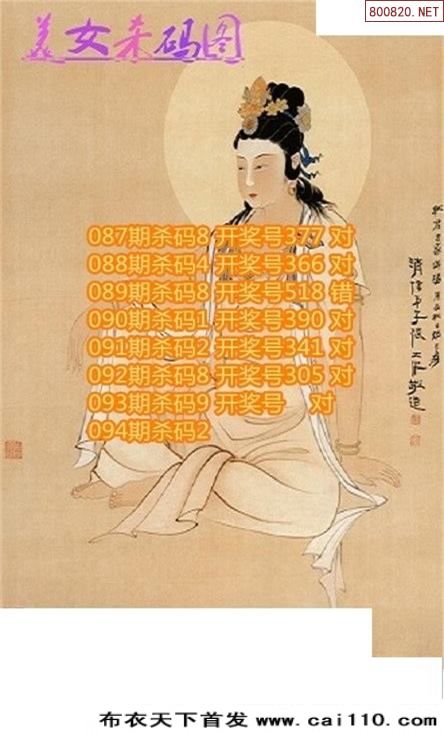 800820.NET
美女杀码图
087期杀码8 开奖号377 对
088期杀码4 开奖号366 对
089期杀码8 开奖号518 错
090期杀码1 开奖号390 对
091期杀码2 开奖号341 对
092期杀码8 开奖号305 对
093期杀码9 开奖号 对
094期杀码2
布衣天下首发 www.cai110.com